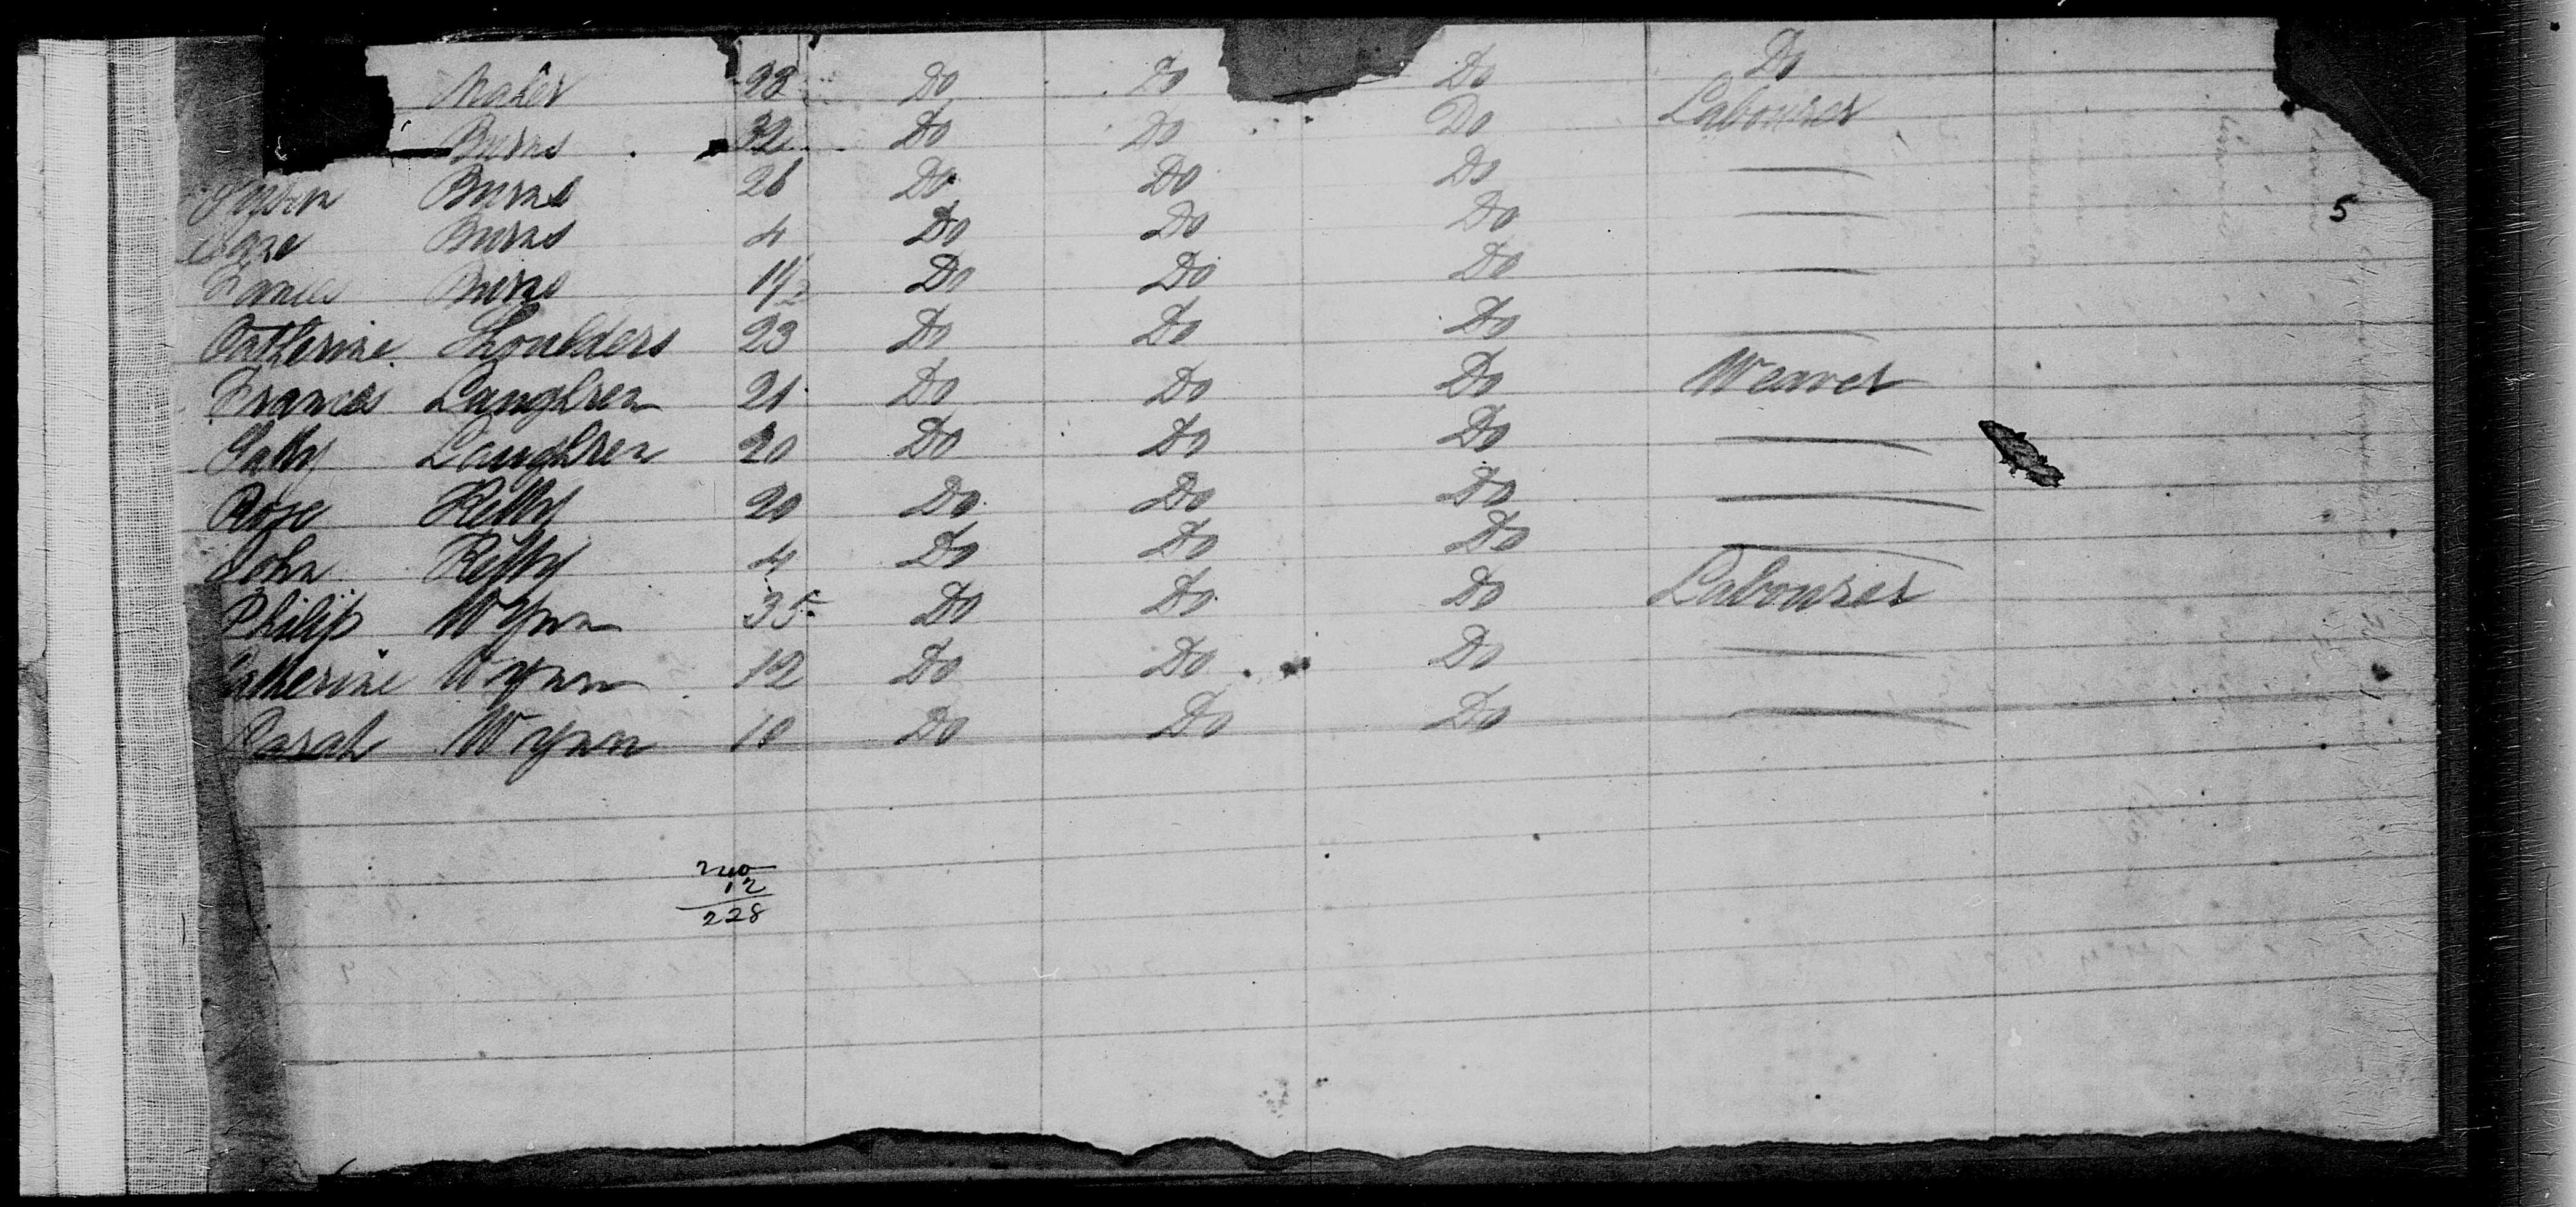 Maher 23 Do Do Do Do
Burns 32 Do Do Do Labourer
Burns 26 Do Do Do —
Jane Burns 4 Do Do Do —
James Burns 1 1/2 Do Do Do —
Catherine Shoulders 23 Do Do Do —
Frances Laughren 21 Do Do Do Weaver
Sally Laughren 20 Do Do Do —
Rose Kelly 20 Do Do Do —
John Kelly 4 Do Do Do —
Philip Wynn 35 Do Do Do Labourer
Catherine Wynn 12 Do Do Do —
Sarah Wynn 10 Do Do Do —
5
240
12
228